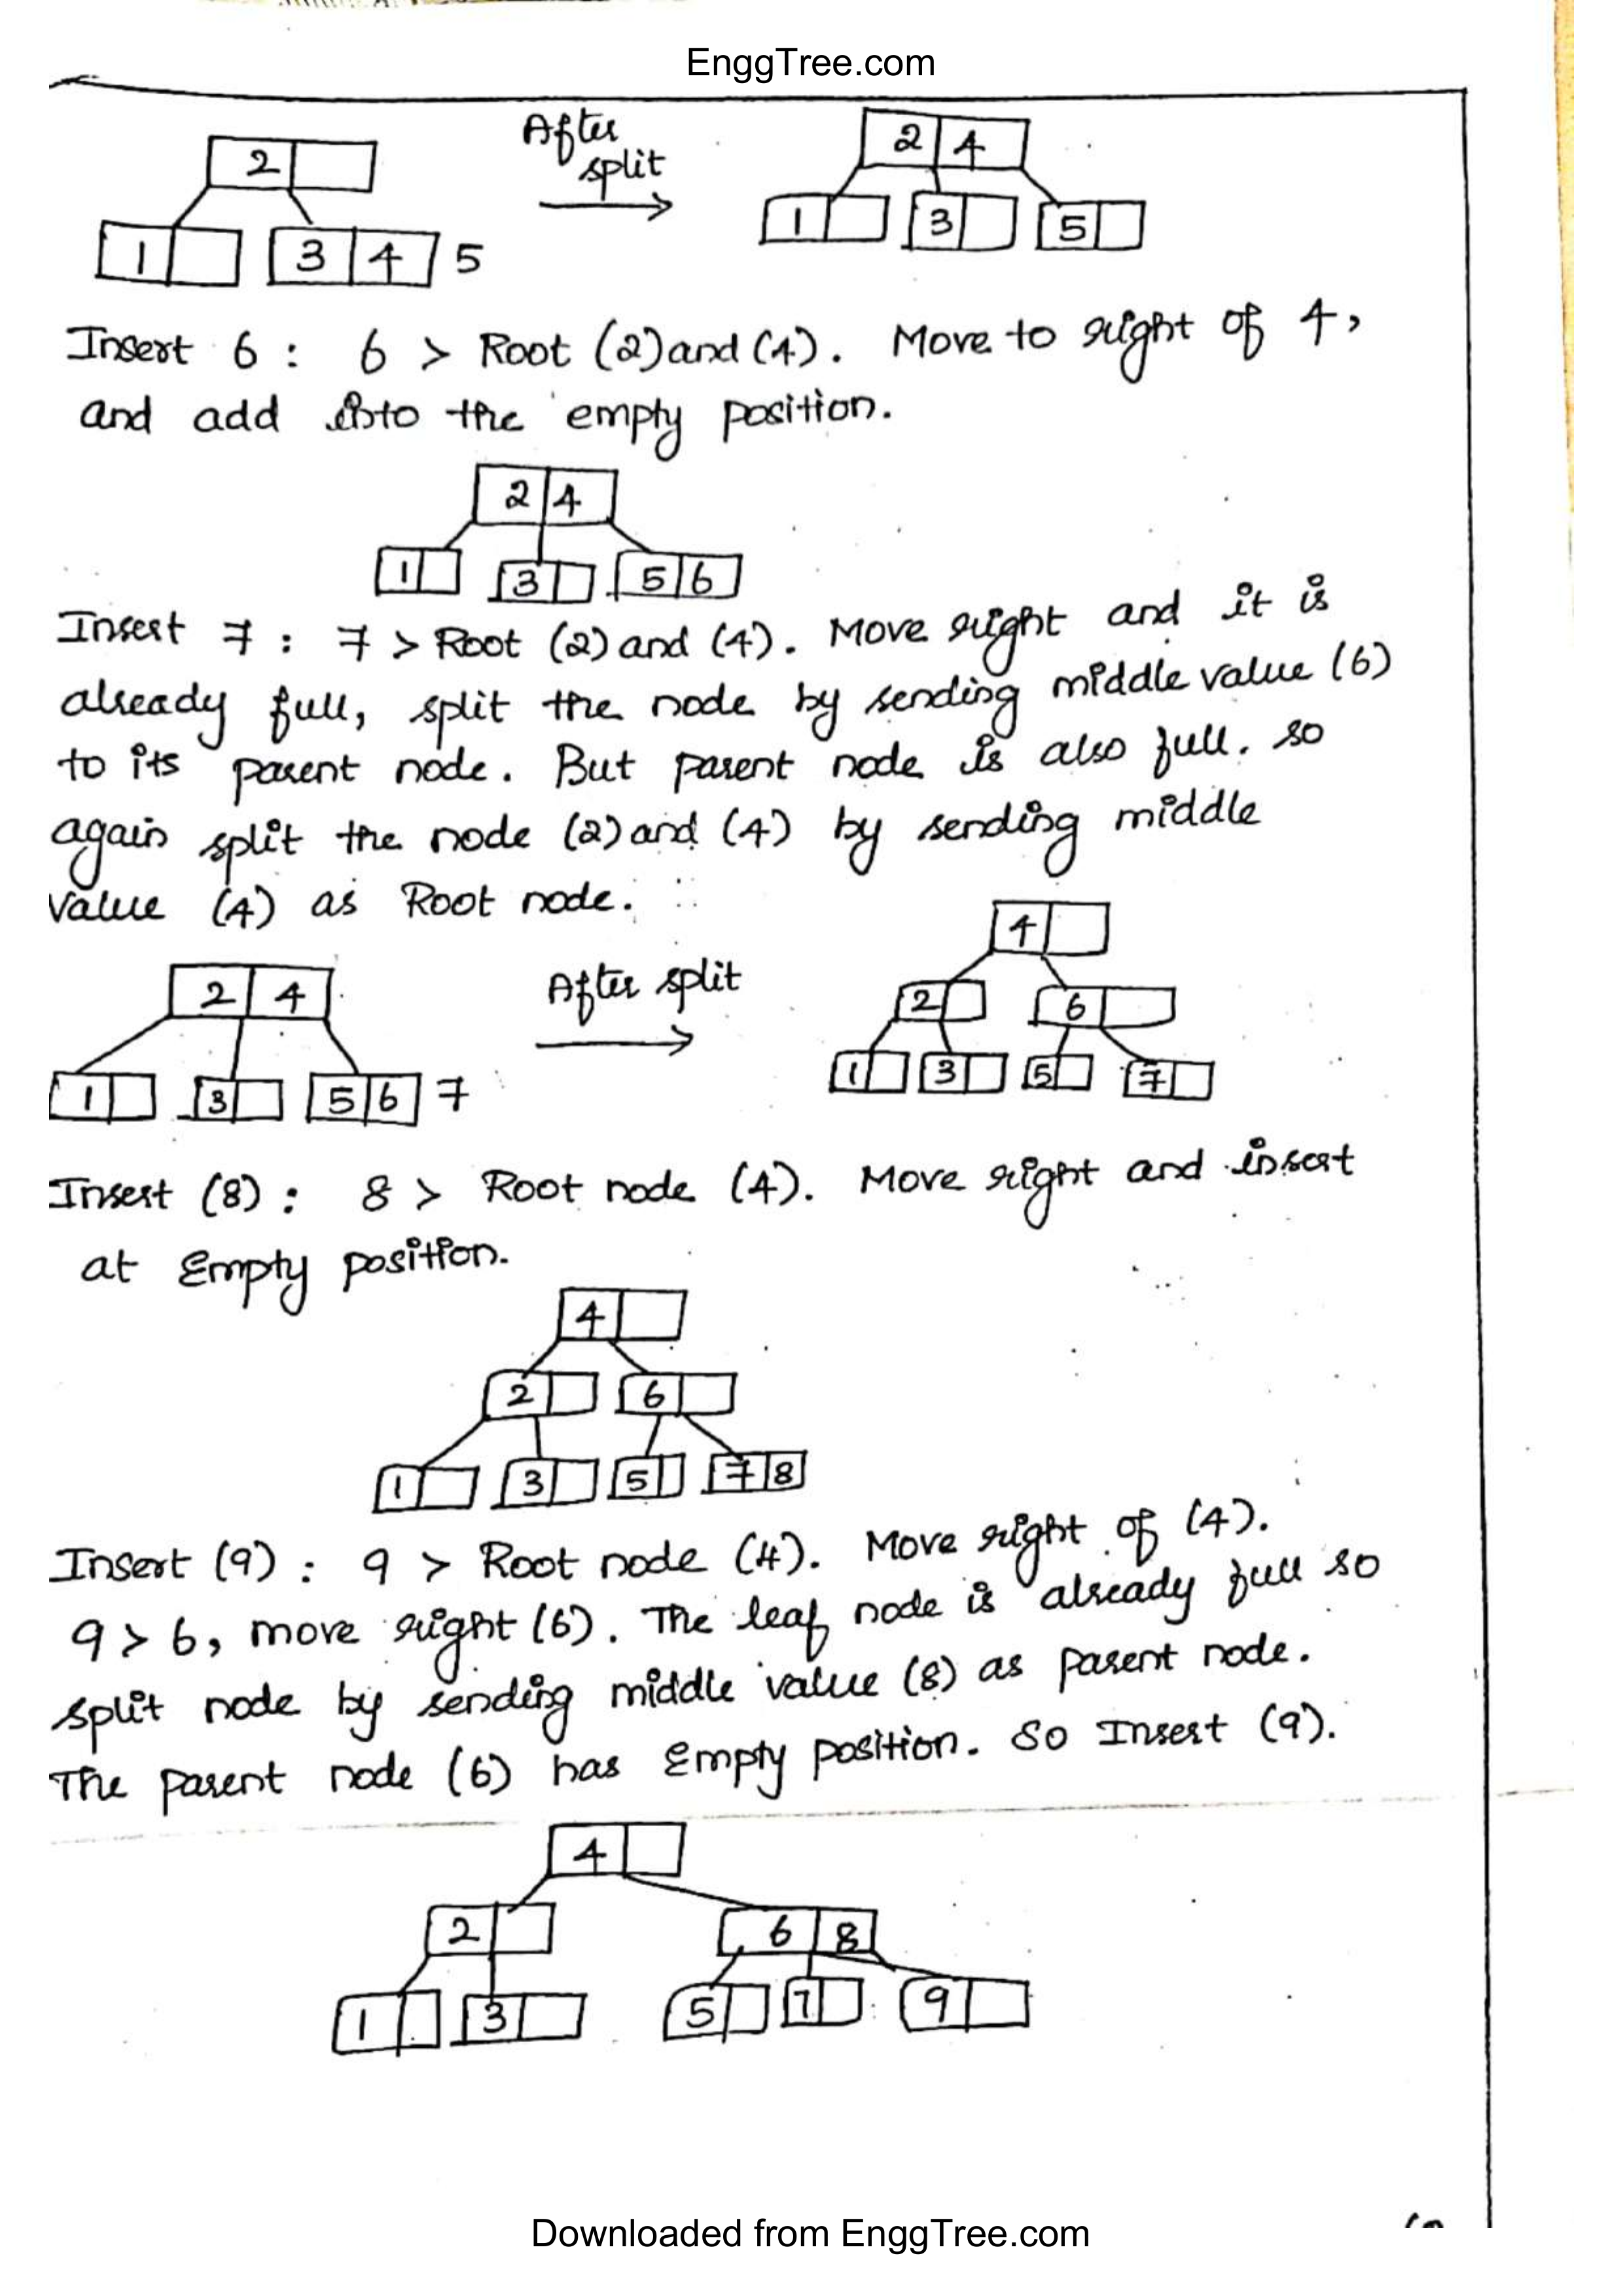 EnggTree.com
After
split
2
2 4
1
3 4 5
1
3
5
Insert 6 : 6 > Root (2) and (4). Move to right of 4,
and add into the empty position.
2 4
1
3
5 6
Insert 7 : 7 > Root (2) and (4). Move right and it is
already full, split the node by sending middle value (6)
to its parent node. But parent node is also full. so
again split the node (2) and (4) by sending middle
value (4) as Root node.
4
2 4
After split
2
6
1
3
5 6 7
1
3
5
7
Insert (8) : 8 > Root node (4). Move right and insert
at Empty position.
4
2
6
1
3
5
7 8
Insert (9) : 9 > Root node (4). Move right of (4).
9 > 6, move right (6). The leaf node is already full so
split node by sending middle value (8) as parent node.
The parent node (6) has Empty position. So Insert (9).
4
2
6 8
1
3
5
7
9
Downloaded from EnggTree.com